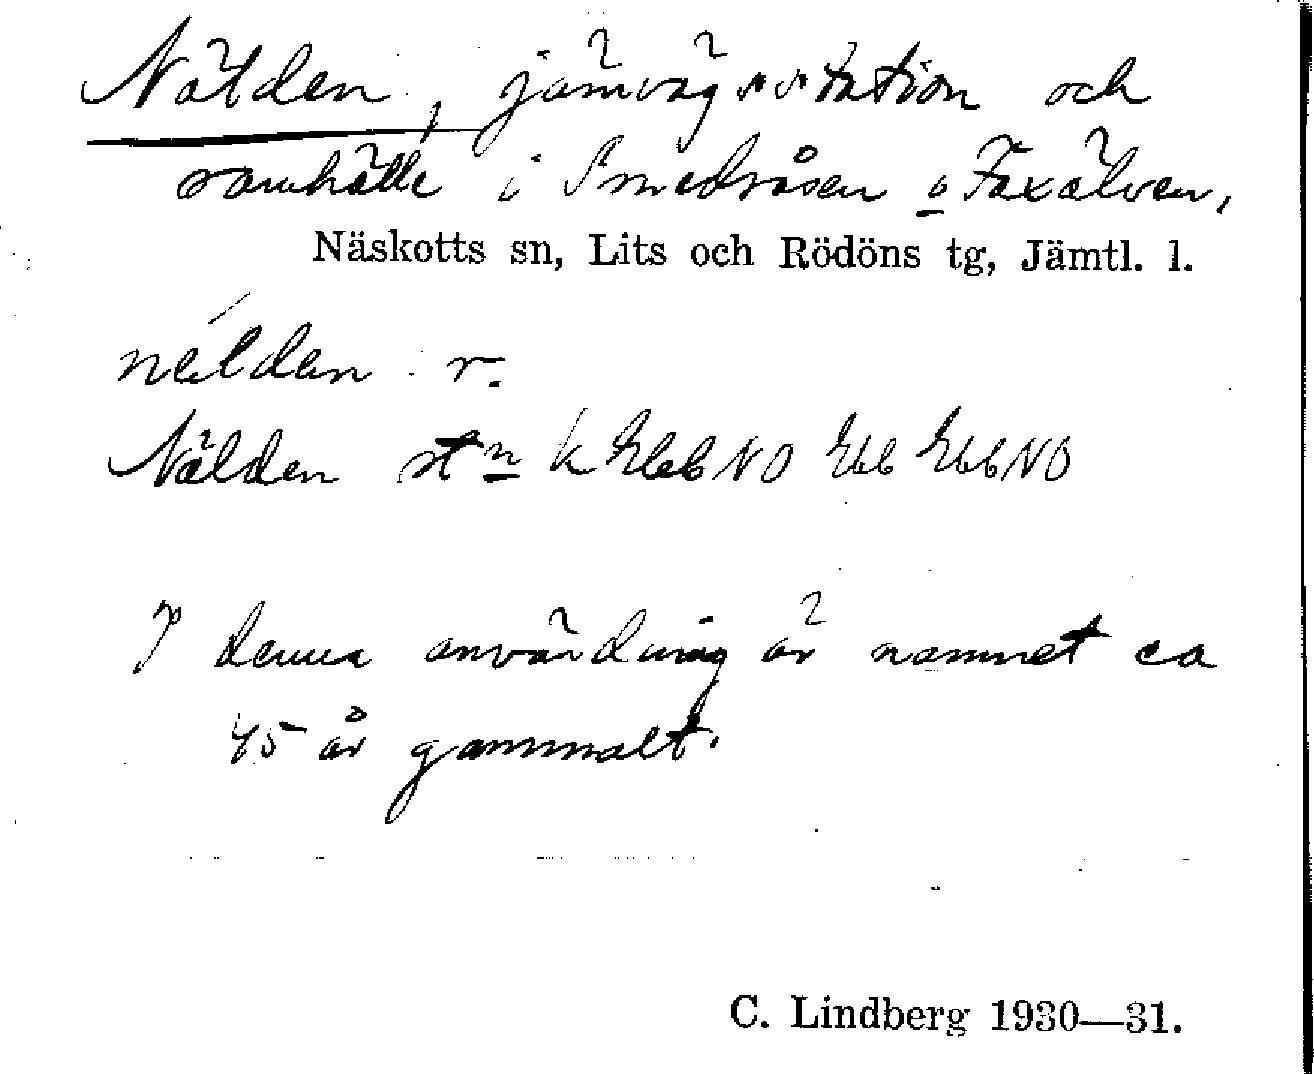 Nälden, järnvägsstation och
samhälle i Smedsåsen o Faxälven,
Näskotts sn, Lits och Rödöns tg, Jämtl. l.
nélden r.
Nälden stn k Ekbl NO Ekb EkblNO
I denna användning är namnet ca
45 år gammalt.
C. Lindberg 1930—31.